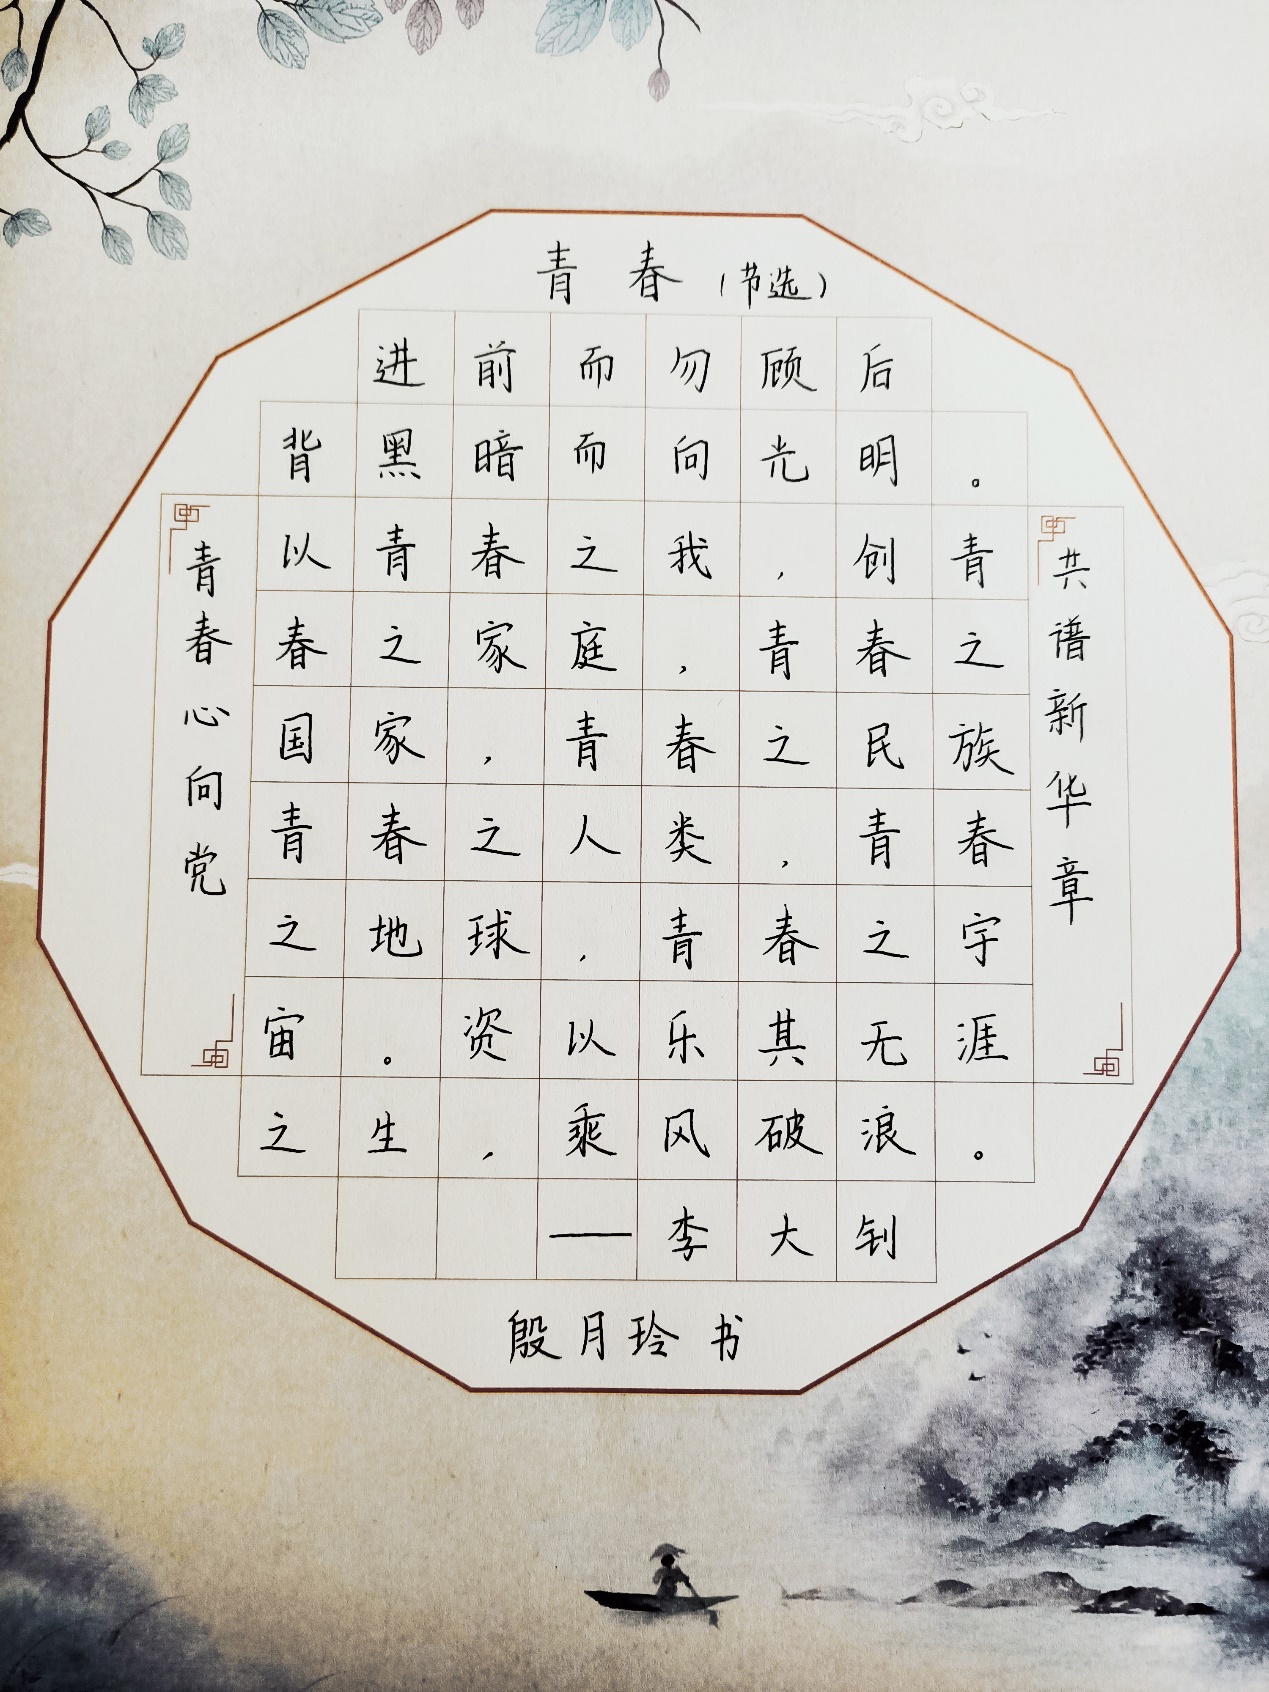 青春（节选）
进前而勿顾后
背黑暗而向光明。
以青春之我，创青
春之家庭，青春之
国家，青春之民族
青春之人类，青春
之地球，青春之宇
宙。资以乐其无涯
之生，乘风破浪。
——李大钊
青春心向党
共谱新华章
殷月玲书